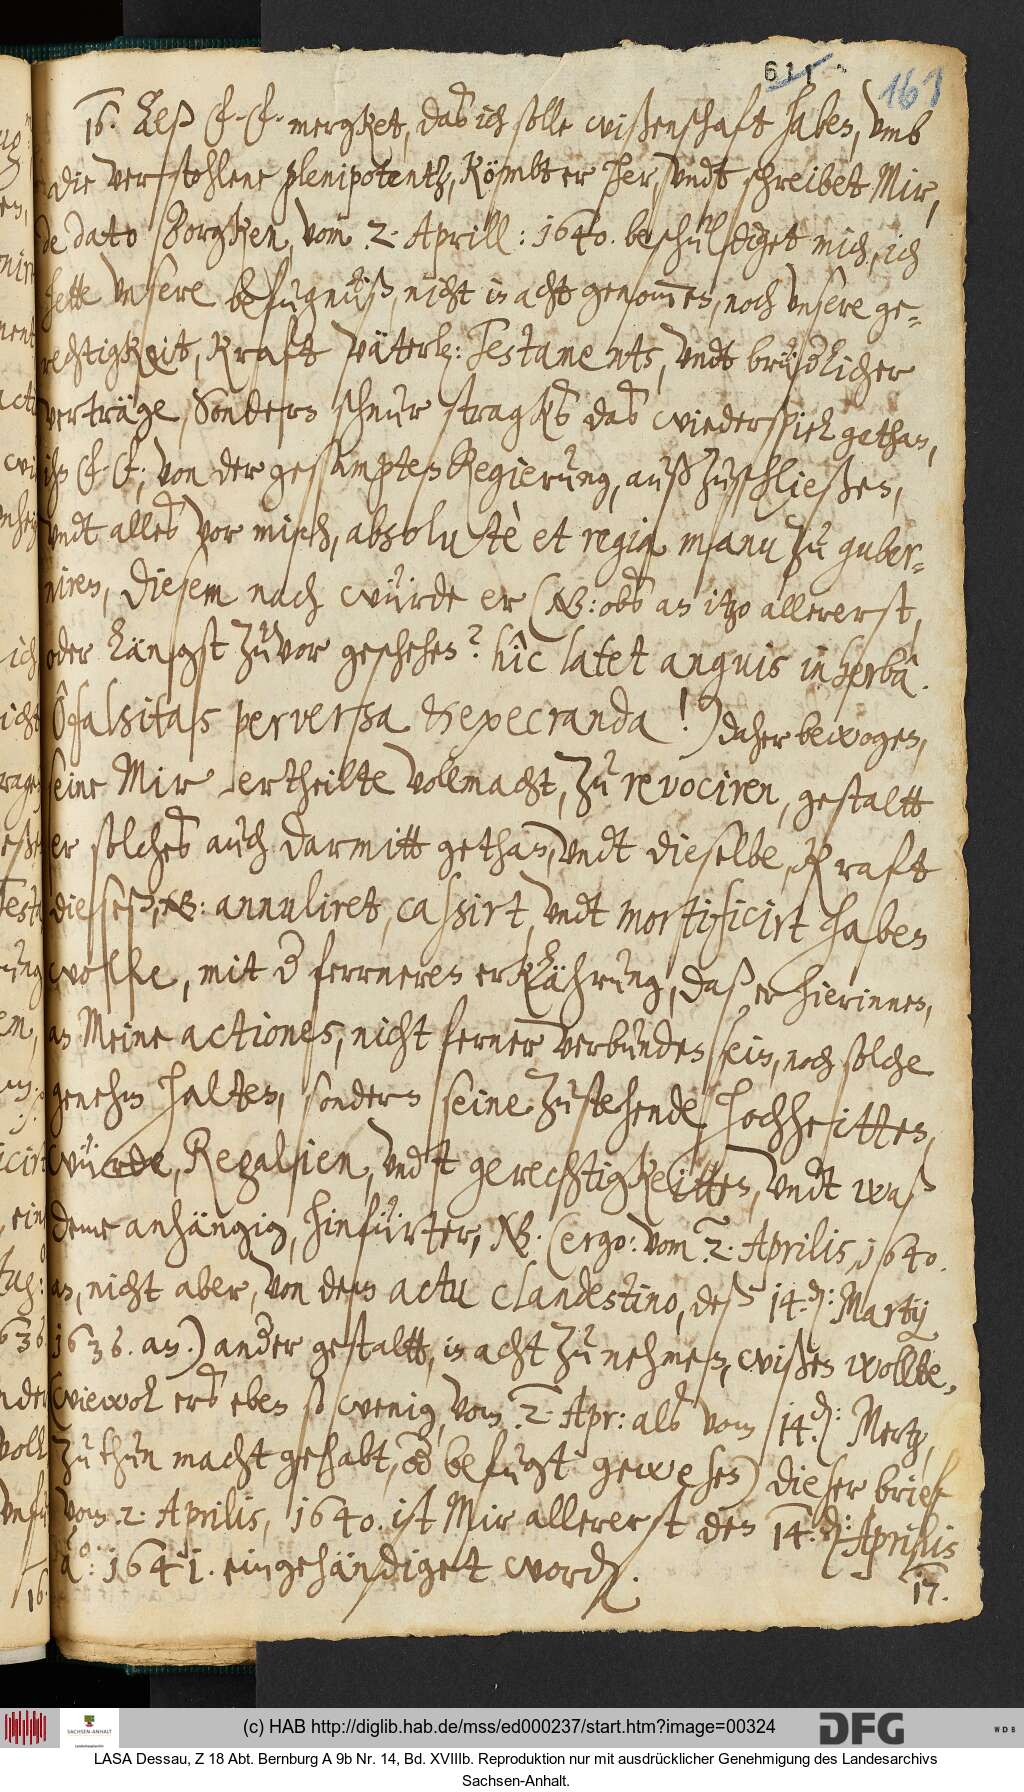 611.
161
16. Alß C. C. mergket, das ich solle wißenschaft haben, vmb
die verstohlene plenipotentz, Kömbt er her, vndt schreibet Mir,
de dato Borgken, vom 2. Aprill: 1640. beschuldiget mich, ich
hette vnsere befugnüß, nicht in acht genommen, noch vnsere ge-
rechtigkeit, Kraft Väterl: Testaments, vndt brüderlicher
verträge, Sondern schnur stragks das wiederspiel gethan,
ihn C. C., von der gesampten Regierung, außzuschließen,
vndt alles vor mich, absolutè et regia manu zu guber-
niren, Diesem nach würde er (NB: obs an itzo allererst,
oder längst zuvor geschehen? hîc latet anguis in herbâ.
Ô falsitas perversa & execranda!) daher bewogen,
seine Mir ertheilte Vollmacht, zu revociren, gestaltt
er solches auch darmitt gethan, vndt dieselbe, Kraft
dieses, NB: annuliret, cassirt, vndt mortificirt haben
wolle, mit der ferrneren erklährung, daß er hierinnen,
an Meine actiones, nicht ferner verbunden sein, noch solche
genehm halten, sondern seine zustehende Hochheitten,
würde, Regalien, vndt gerechtigkeitten, vndt waß
deme anhängig, hinfürter, NB. (ergo: vom 2. Aprilis, 1640.
an, nicht aber, von dem actu clandestino, deß 14.d: Martij
1636. an.) ander gestaltt, in acht zu nehmen, wißen wollte,
(wiewol ers eben so wenig, vom 2. Apr: als vom 14.d: Mertz,
zu thun macht gehabt, oder befugt gewesen) dieser brief
vom 2. Aprilis, 1640. ist Mir allererst den 14.d: Aprilis
a.o: 1641. eingehändiget worden.
17.
(c) HAB http://diglib.hab.de/mss/ed000237/start.htm?image=00324
SACHSEN-ANHALT
DFG
WDB
LASA Dessau, Z 18 Abt. Bernburg A 9b Nr. 14, Bd. XVIIIb. Reproduktion nur mit ausdrücklicher Genehmigung des Landesarchivs
Sachsen-Anhalt.